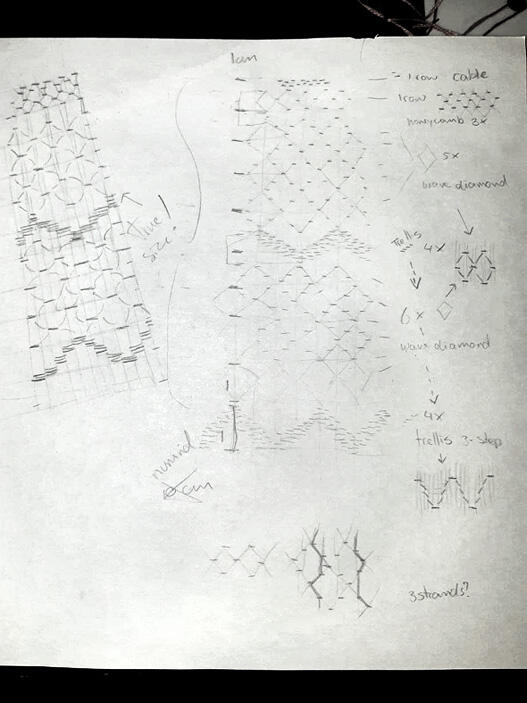 1cm
1 row cable
1 row
honeycomb 3x
5x
wave diamond
true
size!
trellis
4x
6x
wave diamond
4x
trellis 3-step
cm
3 strands?